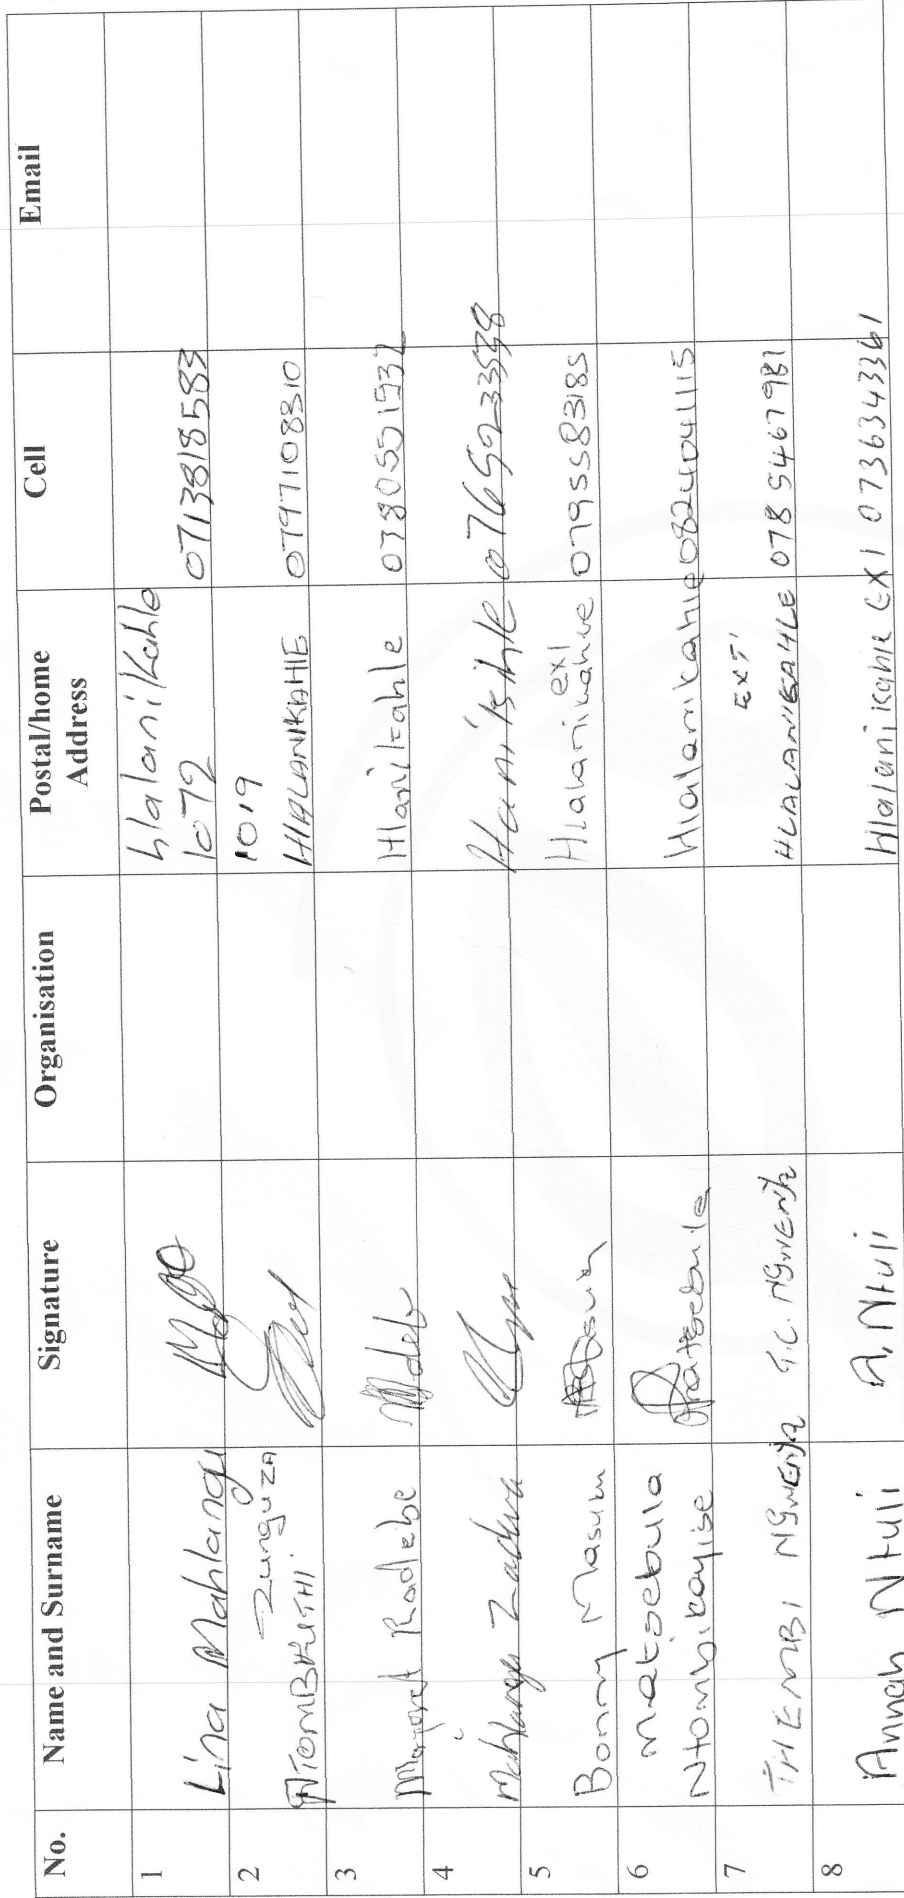 No. Name and Surname Signature Organisation Postal/home Address Cell Email
1 Lina Mahlangu Hlalanikahle 1072 0713818583
2 Zunguza 1019 HlALANIKAHlE 0797108310
3 Margaret Radebe Hlanikahle
4 Mahlangu
5 Bonny Masum Hlalanikahle ex1 0795583185
6 Matsebulla Ntombikayise Hlalanikahle 0824041115
7 THEMBI NGWENYA G.C. NGWENYA EXT1 0785467981
8 Annah Ntuli A. Ntuli Hlalanikahle EX1 0736343361